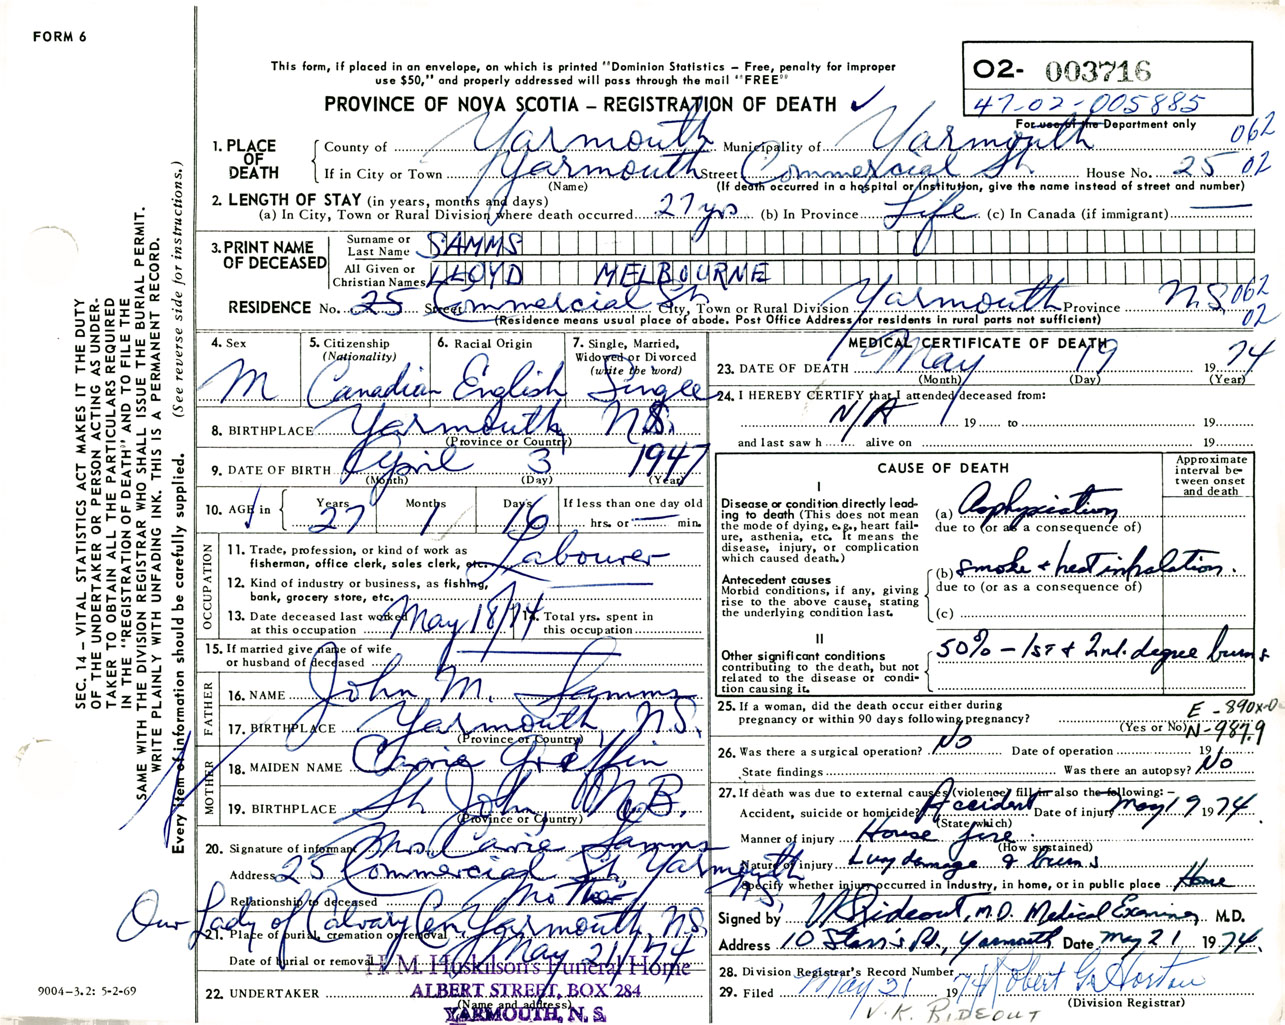 FORM 6
This form, if placed in an envelope, on which is printed "Dominion Statistics – Free, penalty for improper
use $50," and properly addressed will pass through the mail "FREE"
O2- 003716
47-02-005885
For use of the Department only
PROVINCE OF NOVA SCOTIA – REGISTRATION OF DEATH ✓
1. PLACE OF DEATH
County of Yarmouth Municipality of Yarmouth 062
If in City or Town Yarmouth Street Commercial St. House No. 25 02
(Name) (If death occurred in a hospital or institution, give the name instead of street and number)
2. LENGTH OF STAY (in years, months and days)
(a) In City, Town or Rural Division where death occurred 27 yrs (b) In Province Life (c) In Canada (if immigrant) —
3. PRINT NAME OF DECEASED
Surname or Last Name SAMMS
All Given or Christian Names LLOYD MELBOURNE
RESIDENCE No. 25 Street Commercial St City, Town or Rural Division Yarmouth Province N.S. 062
02
(Residence means usual place of abode. Post Office Address for residents in rural parts not sufficient)
4. Sex
M
5. Citizenship
(Nationality)
Canadian
6. Racial Origin
English
7. Single, Married,
Widowed or Divorced
(write the word)
Single
8. BIRTHPLACE Yarmouth N.S.
(Province or Country)
9. DATE OF BIRTH April 3 1947
(Month) (Day) (Year)
10. AGE in
Years Months Days If less than one day old
27 1 16 hrs. or — min.
OCCUPATION
11. Trade, profession, or kind of work as
fisherman, office clerk, sales clerk, etc. Labourer
12. Kind of industry or business, as fishing,
bank, grocery store, etc. —
13. Date deceased last worked
at this occupation May 18/74
14. Total yrs. spent in
this occupation
15. If married give name of wife
or husband of deceased —
FATHER
16. NAME John M. Samms
17. BIRTHPLACE Yarmouth, N.S.
(Province or Country)
MOTHER
18. MAIDEN NAME Carrie Greffin
19. BIRTHPLACE St John, N.B.
(Province or Country)
20. Signature of informant Mrs. Carrie Samms
Address 25 Commercial St, Yarmouth N.S.
Relationship to deceased Mother
Our Lady of Calvary Cem Yarmouth, N.S.
21. Place of burial, cremation or removal
Date of burial or removal May 21/74
22. UNDERTAKER
H. M. Huskilson's Funeral Home
ALBERT STREET, BOX 284
(Name and address)
YARMOUTH, N. S.
MEDICAL CERTIFICATE OF DEATH
23. DATE OF DEATH May 19 1974
(Month) (Day) (Year)
24. I HEREBY CERTIFY that I attended deceased from:
N/A 19 to 19
and last saw h alive on 19
CAUSE OF DEATH
Approximate
interval be-
tween onset
and death
I
Disease or condition directly lead-
ing to death (This does not mean
the mode of dying, e.g., heart fail-
ure, asthenia, etc. It means the
disease, injury, or complication
which caused death.)
(a) Asphyxiation
due to (or as a consequence of)
Antecedent causes
Morbid conditions, if any, giving
rise to the above cause, stating
the underlying condition last.
(b) smoke + heat inhalation.
due to (or as a consequence of)
(c)
II
Other significant conditions
contributing to the death, but not
related to the disease or condi-
tion causing it.
50% – 1st & 2nd. degree burns
25. If a woman, did the death occur either during
pregnancy or within 90 days following pregnancy?
(Yes or No)
E -890x-0
N-987.9
26. Was there a surgical operation? No Date of operation 19
State findings Was there an autopsy? No
27. If death was due to external causes (violence) fill in also the following: –
Accident, suicide or homicide? Accident Date of injury May 19 1974.
(State which)
Manner of injury House fire.
(How sustained)
Nature of injury Lung damage & burns
Specify whether injury occurred in industry, in home, or in public place Home
Signed by VK Rideout, M.D. Medical Examiner M.D.
Address 10 Starr's Rd., Yarmouth Date May 21 1974.
28. Division Registrar's Record Number
29. Filed May 21 1974 Robert G. Horton
(Division Registrar)
V. K. RIDEOUT
SEC. 14 – VITAL STATISTICS ACT MAKES IT THE DUTY
OF THE UNDERTAKER OR PERSON ACTING AS UNDER-
TAKER TO OBTAIN ALL THE PARTICULARS REQUIRED
IN THE "REGISTRATION OF DEATH" AND TO FILE THE
SAME WITH THE DIVISION REGISTRAR WHO SHALL ISSUE THE BURIAL PERMIT.
WRITE PLAINLY WITH UNFADING INK. THIS IS A PERMANENT RECORD.
Every item of information should be carefully supplied. (See reverse side for instructions.)
9004-3.2: 5-2-69